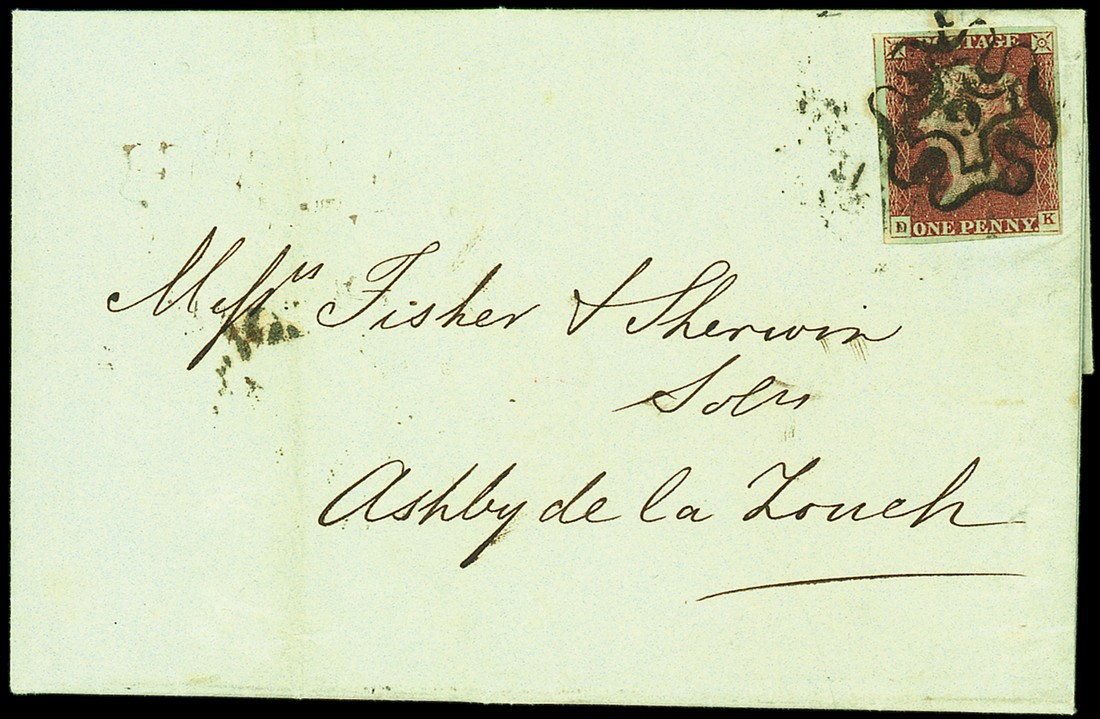 POSTAGE
D K
ONE PENNY.
Messrs Fisher & Sherwin
Solrs
Ashby de la Zouch